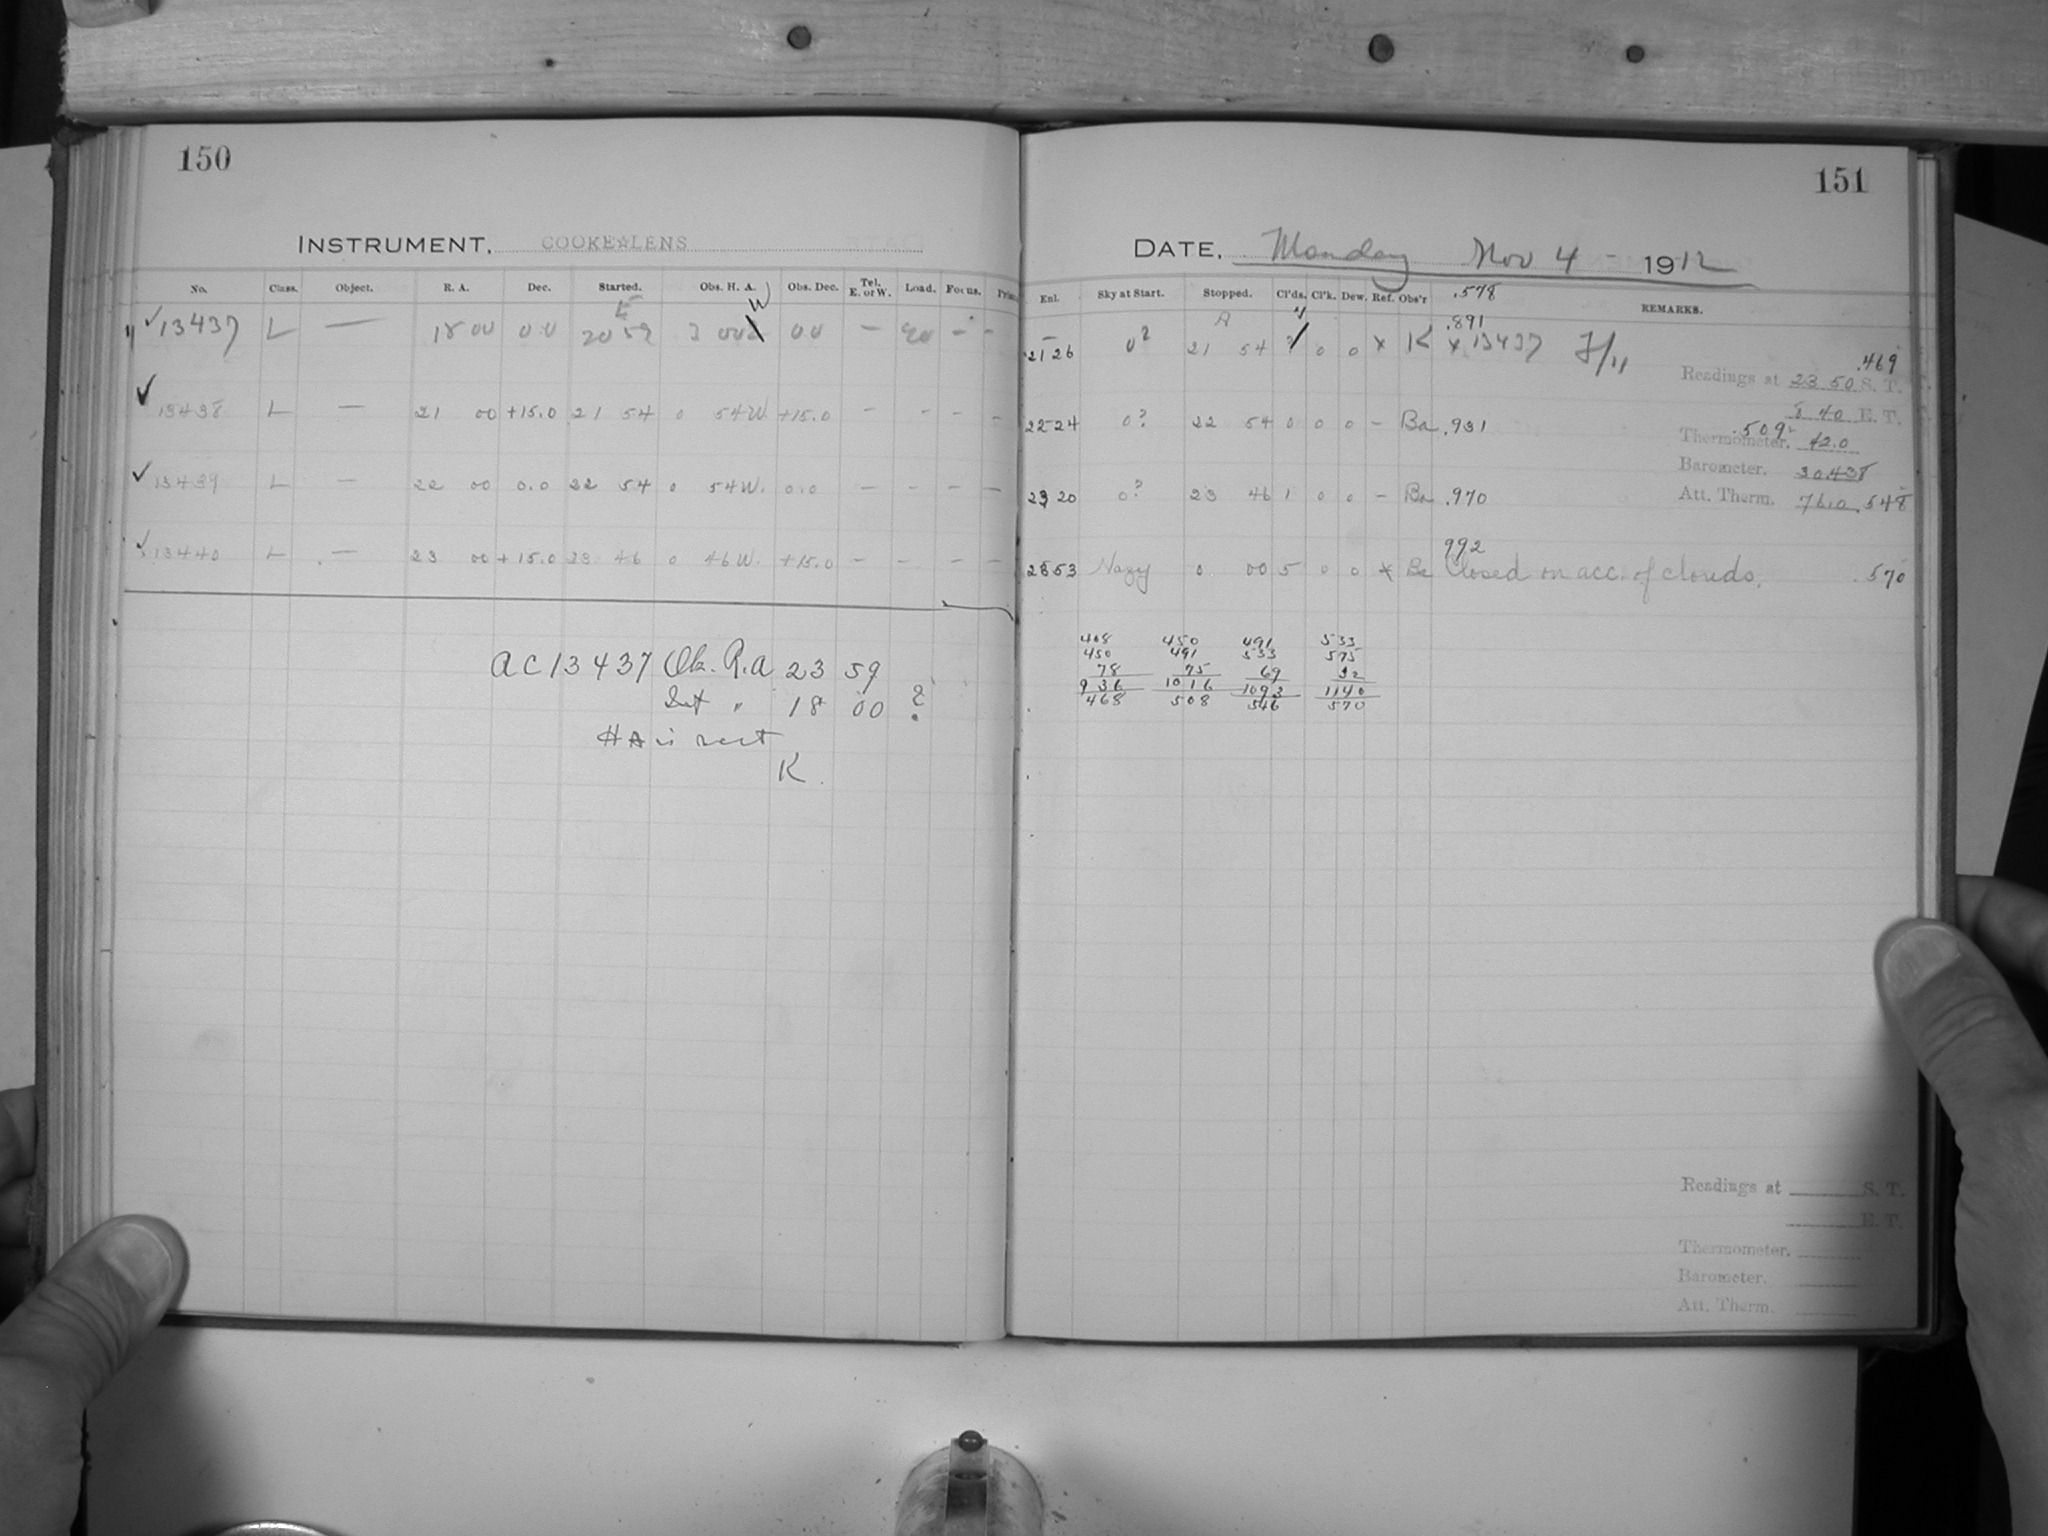 150
INSTRUMENT, COOKE☆LENS
No. Class. Object. R. A. Dec. Started. Obs. H. A. Obs. Dec. Tel. E. or W. Load. Focus.
E W
✓ 13437 L — 18 00 0.0 20 59 3 00 0.0 — 20 - -
✓ 13438 L — 21 00 +15.0 21 54 0 54W. +15.0 - - - -
✓ 13439 L — 22 00 0.0 22 54 0 54W. 0.0 - - - -
✓ 13440 L — 23 00 +15.0 23 46 0 46W. +15.0 - - - -
AC13437 Ob. R.A 23 59
Set " 18 00 ?
HA is west
K.
151
DATE, Monday Nov 4 - 1912
Enl. Sky at Start. Stopped. Cl'ds. Cl'k. Dew. Ref. Obs'r REMARKS.
.578
.891
21 26 0? 21 54 0 0 x K x 13437
.469
Readings at 23 50 S. T.
8 40 E. T.
22 24 0? 22 54 0 0 0 - Ba .931
.509
Thermometer. 42.0
Barometer. 30.438
23 20 0? 23 46 1 0 0 - Ba .970
Att. Therm. 76.0 .548
992
23 53 Hazy 0 00 5 0 0 x Ba Closed on acc. of clouds. .570
408 450 491 533
450 491 533 575
78 75 69 32
936 1016 1093 1140
468 508 546 570
Readings at S. T.
E. T.
Thermometer.
Barometer.
Att. Therm.